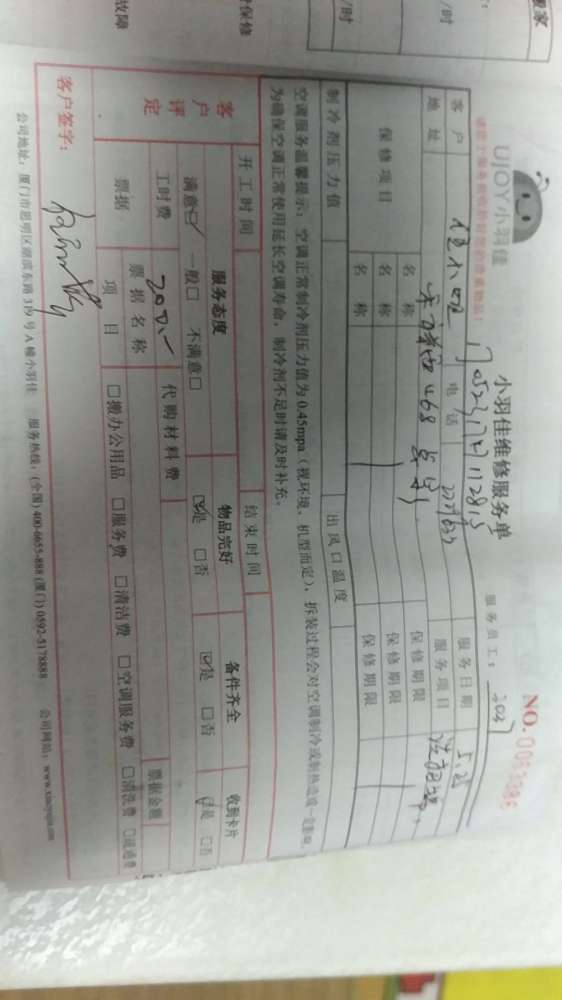 UJOY小羽佳
小羽佳维修服务单
NO.
服务员工:
客户
电话
服务日期 5.25
地址
服务项目
保修项目
名称
保修期限
名称
保修期限
名称
保修期限
制冷剂压力值
出风口温度
空调服务温馨提示:空调正常制冷剂压力值为0.45mpa(视环境、机型而定),拆装过程会对空调制冷或制热造成一定影响,
为确保空调正常使用延长空调寿命,制冷剂不足时请及时补充。
开工时间
结束时间
客户评定
服务态度
物品完好
备件齐全
收到卡片
满意☑ 一般□ 不满意□
☑是 □否
☑是 □否
☑是 □否
工时费
200
代购材料费
票据金额
票据
票据名称
项目
□搬办公用品 □服务费 □清洁费 □空调服务费 □清洗费 □疏通费
客户签字:
公司地址:厦门市思明区湖滨东路319号A楼小羽佳 服务热线:(全国)400-6655-888 (厦门)0592-5178888 公司网站:www.xiaoyujia.com
搬家
/时
/时
保修
故障